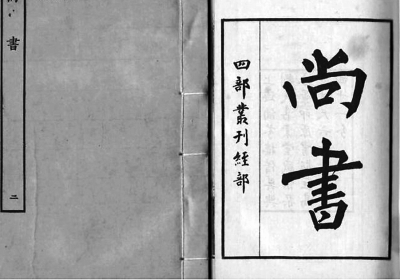 尚書
四部叢刊經部
尚書
二